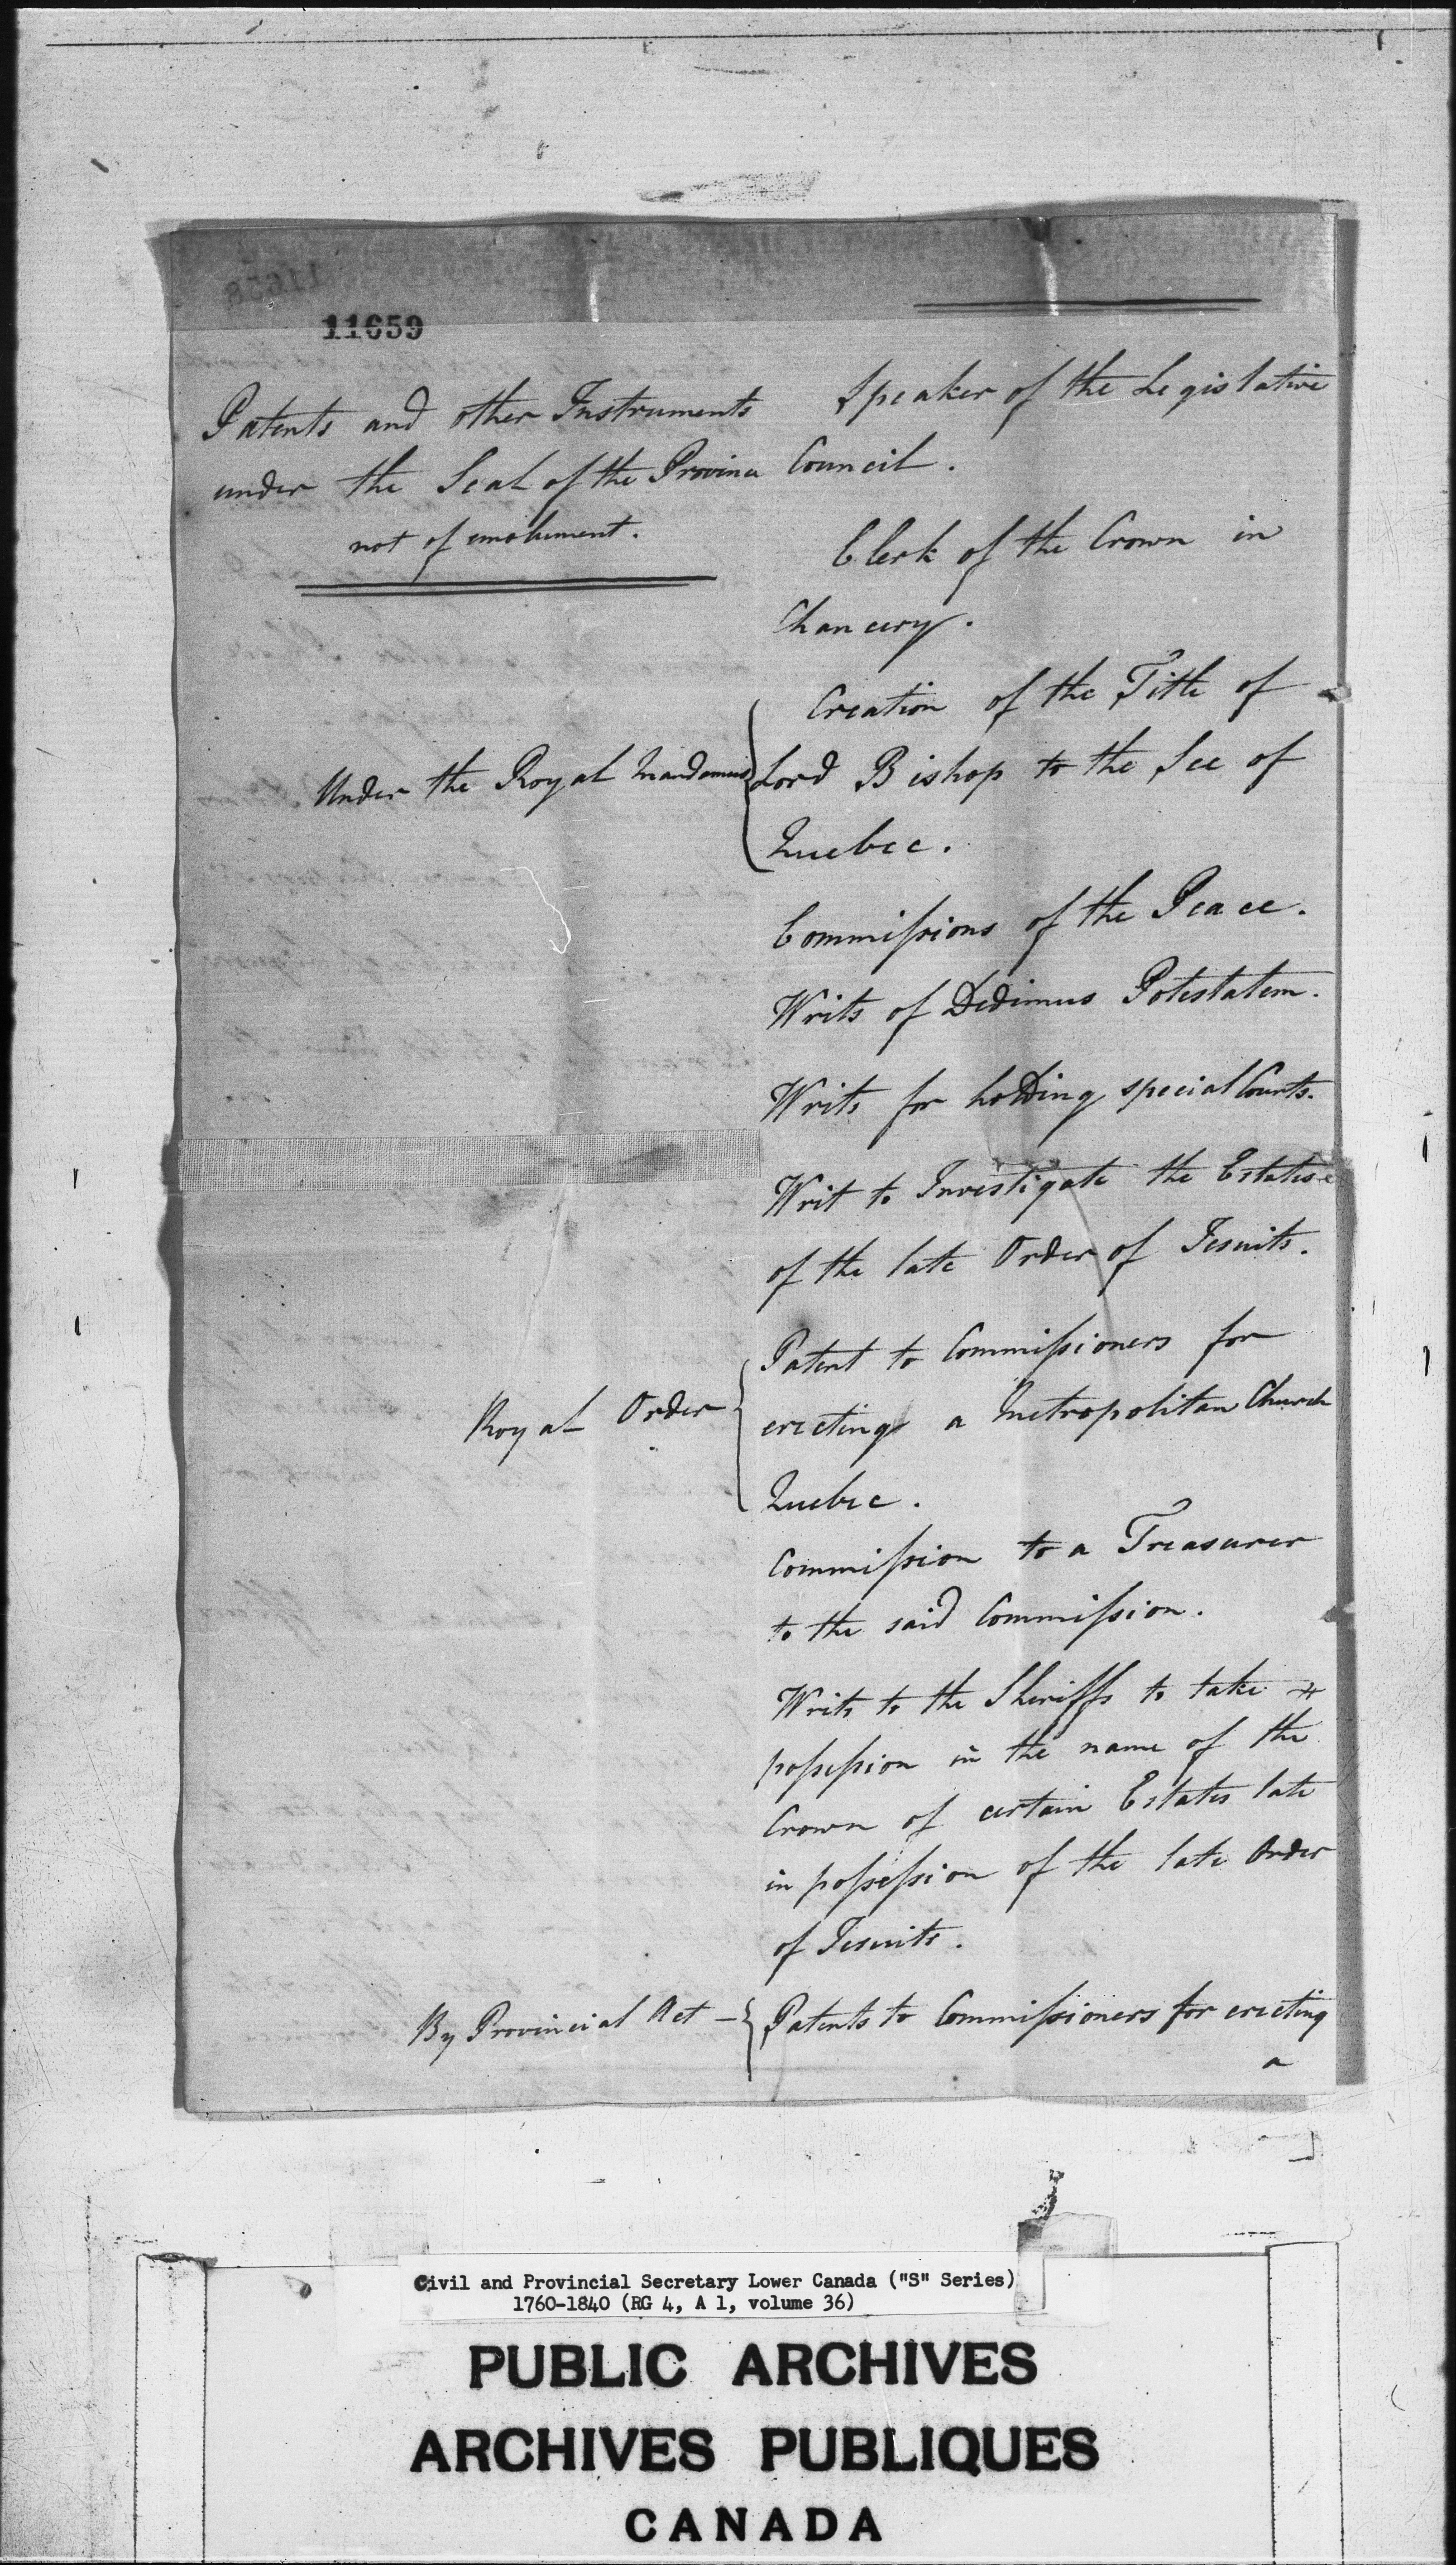 11659
Patents and other Instruments
under the Seal of the Province
not of emolument.
Speaker of the Legislative
Council.
Clerk of the Crown in
Chancery.
Under the Royal Mandamus
Creation of the Title of
Lord Bishop to the See of
Quebec.
Commiſsions of the Peace.
Writs of Dedimus Potestatem.
Writs for holding special Courts.
Writ to Investigate the Estates
of the late Order of Jesuits.
Royal Order
Patent to Commiſsioners for
erecting a Metropolitan Church
Quebec.
Commiſsion to a Treasurer
to the said Commiſsion.
Writs to the Sheriffs to take
poſseſsion in the name of the
Crown of certain Estates late
in poſseſsion of the late Order
of Jesuits.
By Provincial Act —
Patents to Commiſsioners for erecting
a
Civil and Provincial Secretary Lower Canada ("S" Series)
1760-1840 (RG 4, A 1, volume 36)
PUBLIC ARCHIVES
ARCHIVES PUBLIQUES
CANADA